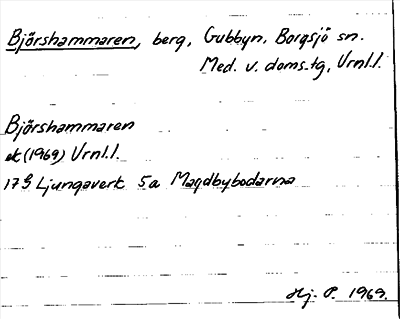 Björshammaren, berg, Gubbyn, Borgsjö sn.
Med. v. doms.tg, Vrnl.l.
Björshammaren
ek (1969) Vrnl.l.
17 G Ljungaverk 5a Magdbybodarna
Hj. P. 1969.